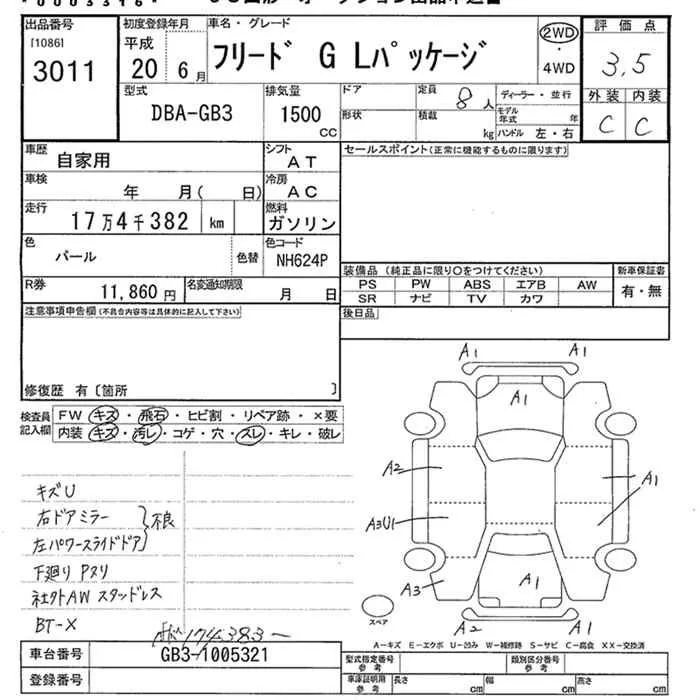 出品番号
[1086]
3011
初度登録年月
平成
20 6月
車名・グレード
フリード G Lパッケージ
2WD
・
4WD
評価点
3.5
外装 内装
C C
型式
DBA-GB3
排気量
1500
cc
ドア
定員
8人
形状
積載
kg
ディーラー・並行
モデル年式 年
ハンドル 左・右
車歴
自家用
シフト
AT
セールスポイント(正常に機能するものに限ります)
車検
年 月( 日)
冷房
AC
走行
17万4千382 km
燃料
ガソリン
色
パール
色替
色コード
NH624P
装備品(純正品に限り○をつけてください)
新車保証書
PS PW ABS エアB AW
有・無
SR ナビ TV カワ
R券
11,860円
名変通知期限
月 日
後日品
注意事項申告欄(不具合内容等は具体的に記入して下さい)
修復歴 有〔箇所 〕
検査員記入欄
FW キズ・飛石・ヒビ割・リペア跡・×要
内装 キズ・汚レ・コゲ・穴・スレ・キレ・破レ
キズU
右ドアミラー
左パワースライドドア
}不良
下廻りPヌリ
社外AW スタッドレス
BT-X
174383
A1 A1
A1
A2
A1
A3U1
A3
A1
A2 A1
スペア
A-キズ E-エクボ U-凹み W-補修跡 S-サビ C-腐食 XX-交換済
車台番号
GB3-1005321
登録番号
型式指定番号
参考
類別区分番号
参考
車庫証明用
参考
長さ cm
幅 cm
高さ cm